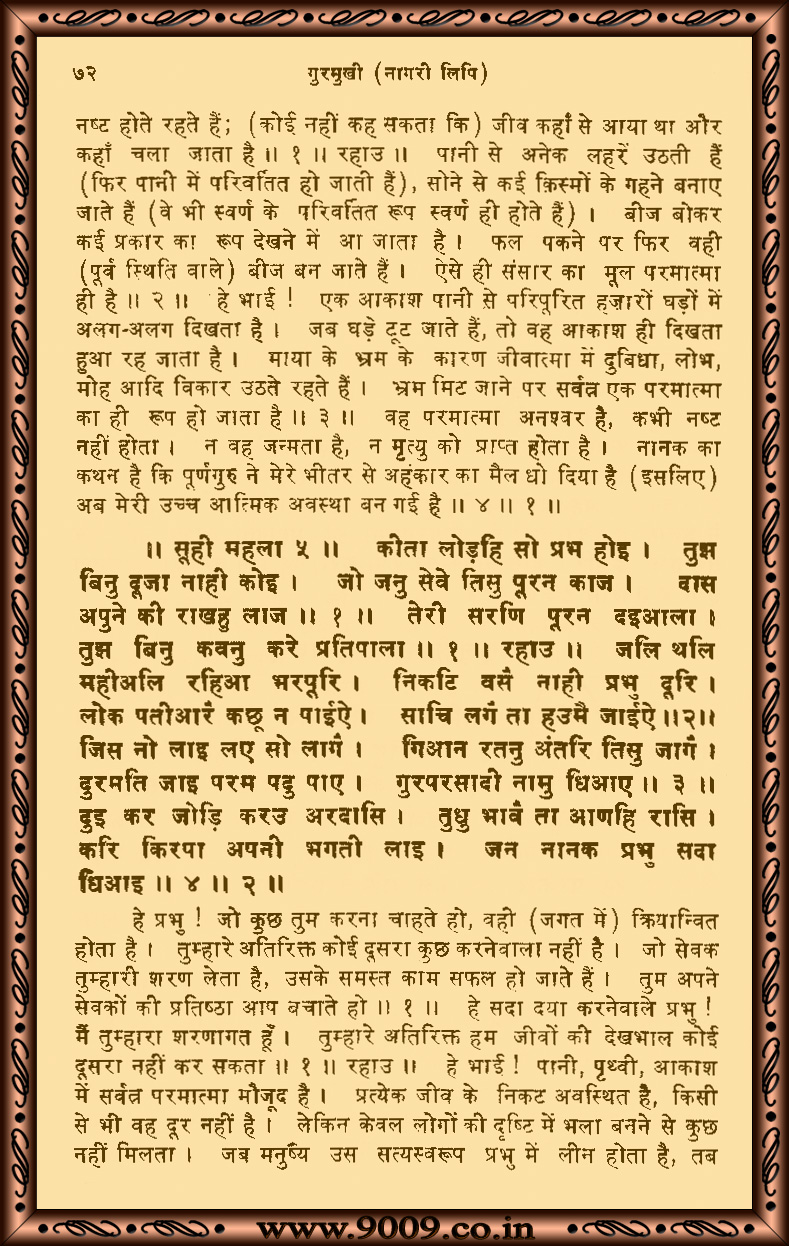 ७२ गुरमुखी (नागरी लिपि)
नष्ट होते रहते हैं; (कोई नहीं कह सकता कि) जीव कहाँ से आया था और
कहाँ चला जाता है ॥ १ ॥ रहाउ ॥ पानी से अनेक लहरें उठती हैं
(फिर पानी में परिवर्तित हो जाती हैं), सोने से कई क़िस्मों के गहने बनाए
जाते हैं (वे भी स्वर्ण के परिवर्तित रूप स्वर्ण ही होते हैं) । बीज बोकर
कई प्रकार का रूप देखने में आ जाता है । फल पकने पर फिर वही
(पूर्व स्थिति वाले) बीज बन जाते हैं । ऐसे ही संसार का मूल परमात्मा
ही है ॥ २ ॥ हे भाई ! एक आकाश पानी से परिपूरित हज़ारों घड़ों में
अलग-अलग दिखता है । जब घड़े टूट जाते हैं, तो वह आकाश ही दिखता
हुआ रह जाता है । माया के भ्रम के कारण जीवात्मा में दुबिधा, लोभ,
मोह आदि विकार उठते रहते हैं । भ्रम मिट जाने पर सर्वत्र एक परमात्मा
का ही रूप हो जाता है ॥ ३ ॥ वह परमात्मा अनश्वर है, कभी नष्ट
नहीं होता । न वह जन्मता है, न मृत्यु को प्राप्त होता है । नानक का
कथन है कि पूर्णगुरु ने मेरे भीतर से अहंकार का मैल धो दिया है (इसलिए)
अब मेरी उच्च आत्मिक अवस्था बन गई है ॥ ४ ॥ १ ॥
॥ सूही महला ५ ॥ कीता लोड़हि सो प्रभ होइ । तुझ
बिनु दूजा नाही कोइ । जो जनु सेवे तिसु पूरन काज । दास
अपुने की राखहु लाज ॥ १ ॥ तेरी सरणि पूरन दइआला ।
तुझ बिनु कवनु करे प्रतिपाला ॥ १ ॥ रहाउ ॥ जलि थलि
महीअलि रहिआ भरपूरि । निकटि वसै नाही प्रभु दूरि ।
लोक पतीआरै कछू न पाईऐ । साचि लगै ता हउमै जाईऐ ॥२॥
जिस नो लाइ लए सो लागै । गिआन रतनु अंतरि तिसु जागै ।
दुरमति जाइ परम पदु पाए । गुरपरसादी नामु धिआए ॥ ३ ॥
दुइ कर जोड़ि करउ अरदासि । तुधु भावै ता आणहि रासि ।
करि किरपा अपनी भगती लाइ । जन नानक प्रभु सदा
धिआइ ॥ ४ ॥ २ ॥
हे प्रभु ! जो कुछ तुम करना चाहते हो, वही (जगत में) क्रियान्वित
होता है । तुम्हारे अतिरिक्त कोई दूसरा कुछ करनेवाला नहीं है । जो सेवक
तुम्हारी शरण लेता है, उसके समस्त काम सफल हो जाते हैं । तुम अपने
सेवकों की प्रतिष्ठा आप बचाते हो ॥ १ ॥ हे सदा दया करनेवाले प्रभु !
मैं तुम्हारा शरणागत हूँ । तुम्हारे अतिरिक्त हम जीवों की देखभाल कोई
दूसरा नहीं कर सकता ॥ १ ॥ रहाउ ॥ हे भाई ! पानी, पृथ्वी, आकाश
में सर्वत्र परमात्मा मौजूद है । प्रत्येक जीव के निकट अवस्थित है, किसी
से भी वह दूर नहीं है । लेकिन केवल लोगों की दृष्टि में भला बनने से कुछ
नहीं मिलता । जब मनुष्य उस सत्यस्वरूप प्रभु में लीन होता है, तब
www.9009.co.in